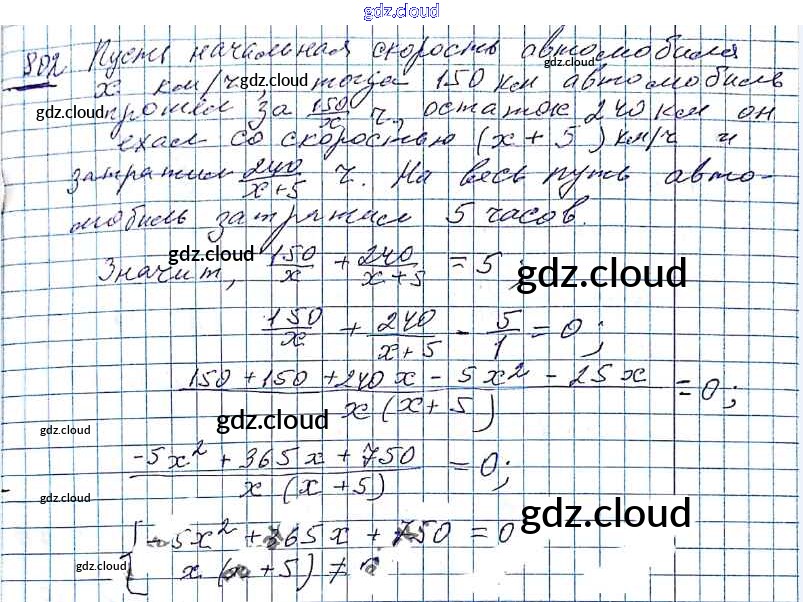 gdz.cloud
802 Пусть начальная скорость автомобиля
x км/ч, gdz.cloud тогда 150 км автомобиль
gdz.cloud прошел за 150/x ч., gdz.cloud остаток 240 км он
ехал со скоростью (x + 5) км/ч и
затратил 240/(x+5) ч. На весь путь авто-
мобиль затратил 5 часов.
Значит, gdz.cloud 150/x + 240/(x+5) = 5; gdz.cloud
150/x + 240/(x+5) - 5/1 = 0;
(150 + 150 + 240x - 5x² - 25x)/(x(x+5)) = 0;
gdz.cloud gdz.cloud
(-5x² + 365x + 750)/(x(x+5)) = 0;
gdz.cloud gdz.cloud
{ -5x² + 365x + 750 = 0
gdz.cloud x(x+5) ≠ 0